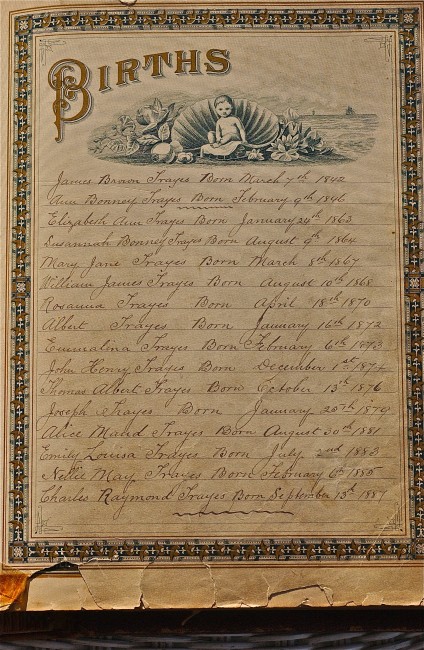 BIRTHS
James Brown Trayes Born March 7th 1842
Ann Bonney Trayes Born February 9th 1846
Elizabeth Ann Trayes Born January 24th 1863
Susannah Bonney Trayes Born August 9th 1864
Mary Jane Trayes Born March 8th 1867
William James Trayes Born August 10th 1868
Rosanna Trayes Born April 18th 1870
Albert Trayes Born January 16th 1872
Emmalina Trayes Born February 6th 1873
John Henry Trayes Born December 1st
Thomas Albert Trayes Born October 13th 1876
Joseph Trayes Born January
Alice Maud Trayes Born August 30th 1881
Emily Louisa Trayes Born July 2nd 1883
Nellie May Trayes Born February 6th 1885
Charles Raymond Trayes Born September 13th 1887